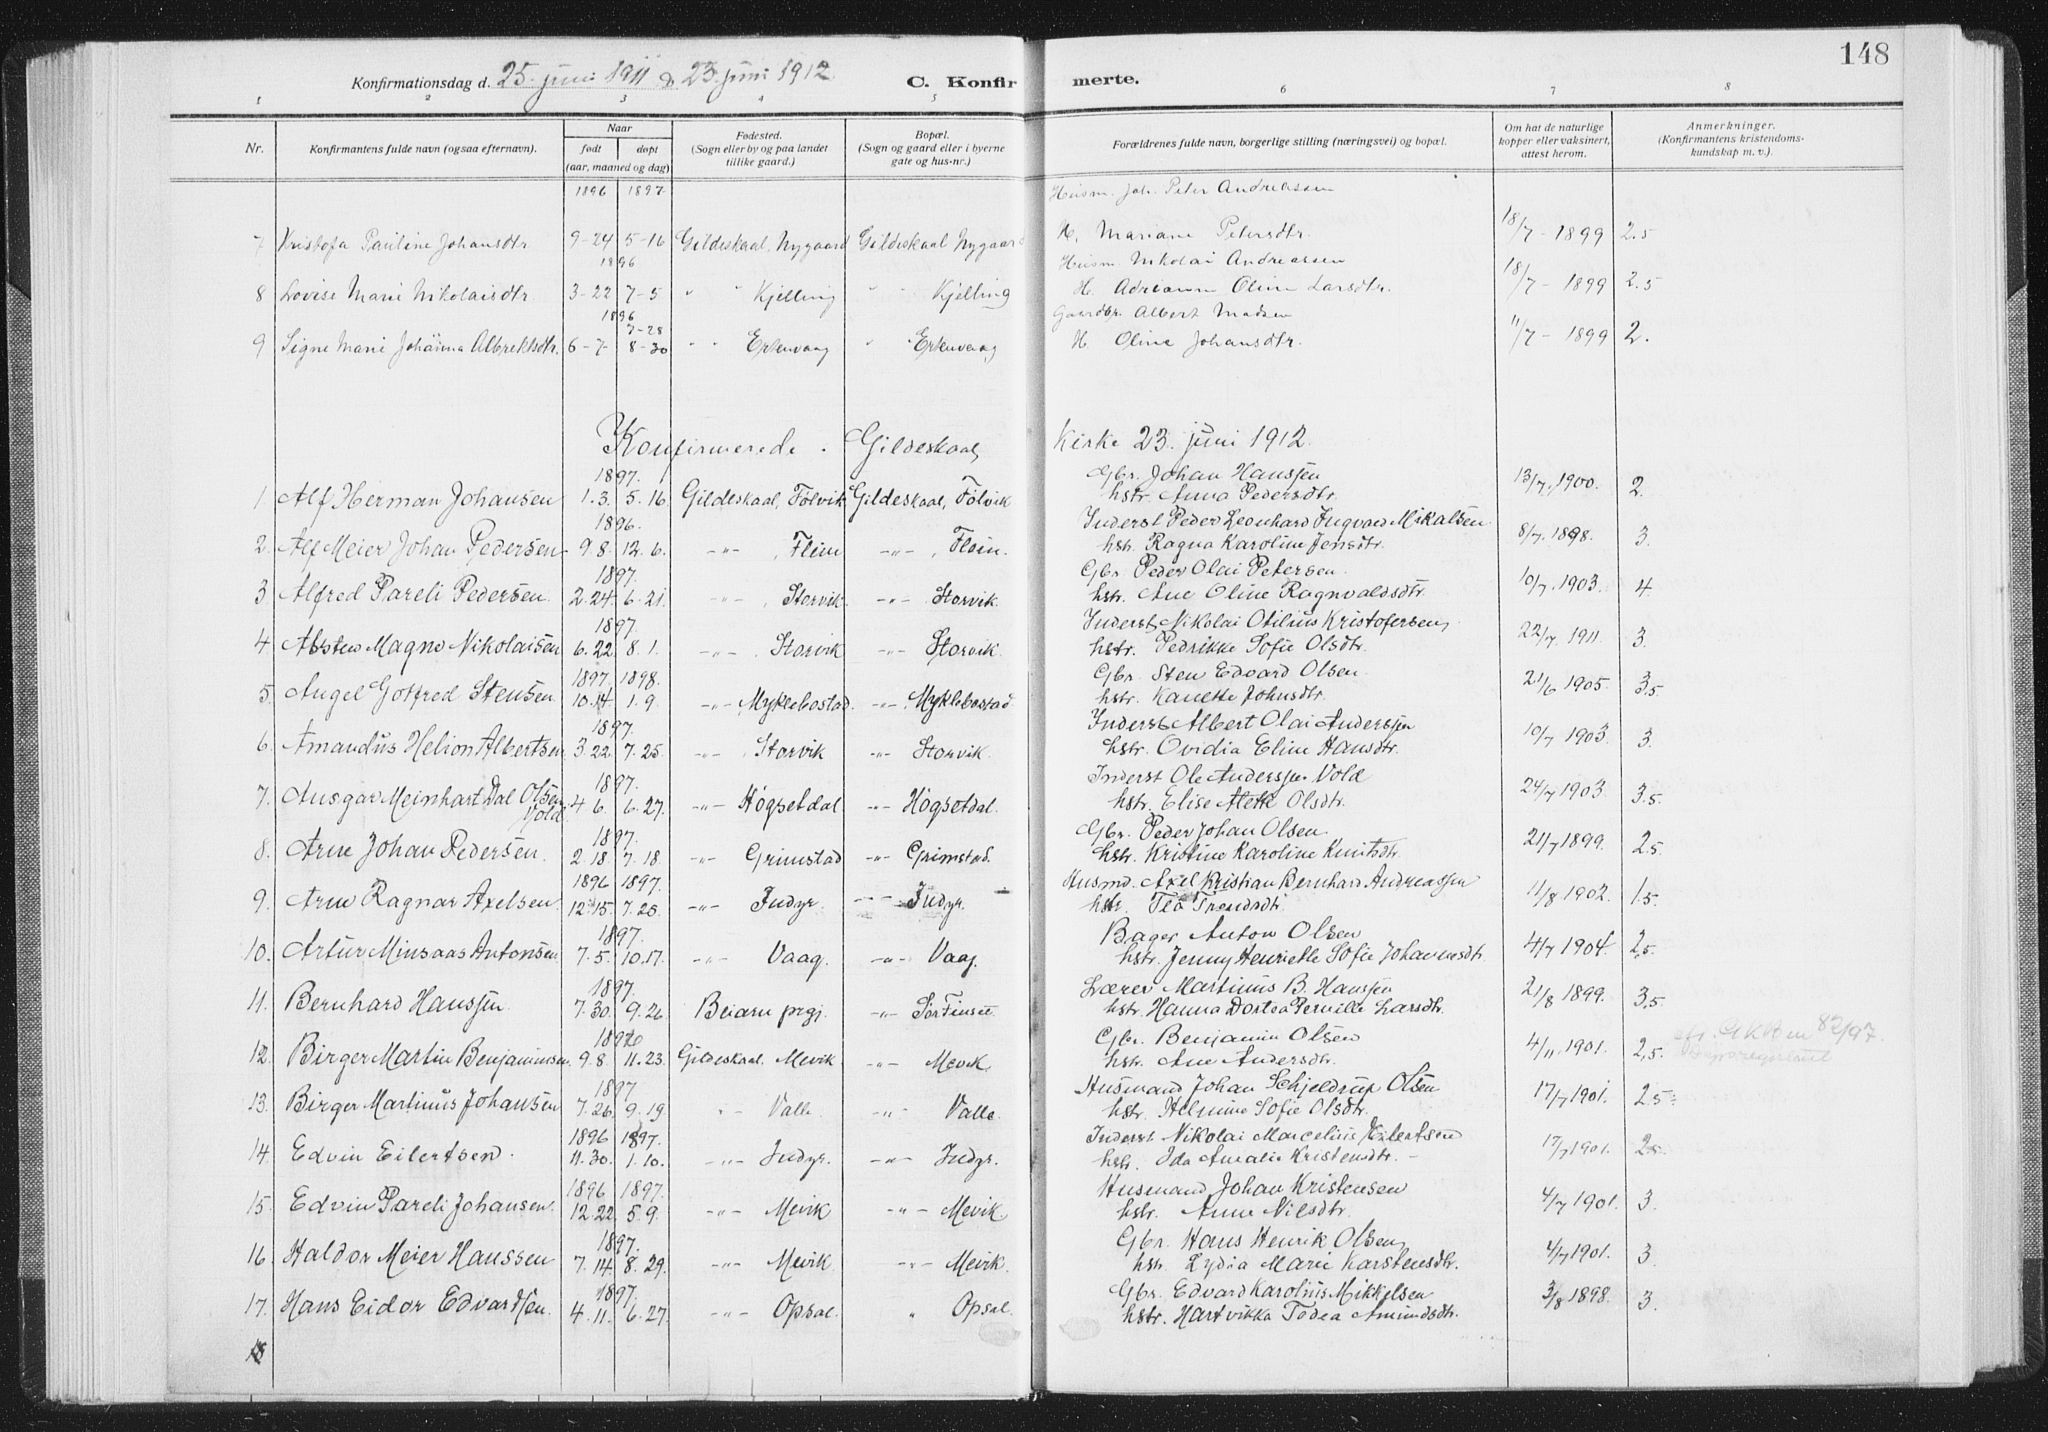 148
Konfirmationsdag d. 25. juni 1911 & 23. juni 1912 C. Konfirmerte.
1 2 3 4 5 6 7 8
Nr. Konfirmantens fulde navn (ogsaa efternavn). Naar født døpt (aar, maaned og dag) Fødested. (Sogn eller by og paa landet tillike gaard.) Bopæl. (Sogn og gaard eller i byerne gate og hus-nr.) Forældrenes fulde navn, borgerlige stilling (næringsvei) og bopæl. Om hat de naturlige kopper eller vaksinert, attest herom. Anmerkninger. (Konfirmantens kristendomskundskap m. v.).
1896 1897 Husm. Joh. Peter Andreassen
7 Kristofa Pauline Johansdtr 9-24 5-16 Gildeskaal, Nygaard Gildeskaal Nygaard H. Mariane Petersdtr. 18/7-1899 2.5
1896 Husm. Nikolai Andreassen
8 Lovise Marie Nikolaisdtr 3-22 7-5 " " Kjelling " " Kjelling H. Adrianna Oline Larsdtr. 18/7-1899 2.5
1896 Gaardbr. Albert Madsen
7-28
9 Signe Marie Johanna Albrektsdtr. 6-7 8-30 " " Ertenvaag " " Ertenvaag H. Oline Johansdtr. 11/7-1899 2.
Konfirmerede. Gildeskaal Kirke 23. juni 1912.
1897. Gbr. Johan Hanssen
1 Alf Herman Johansen 1.3. 5.16. Gildeskaal, Følvik Gildeskaal, Følvik hstr. Anna Pedersdtr. 13/7.1900. 2.
1896. Inderst Peder Leonhard Ingvard Mikalsen
2. Alf Meier Johan Pedersen 9.8. 12.6. -"- , Flein -"- , Flein. hstr. Ragna Karoline Jensdtr. 8/7.1898. 3.
1897. Gbr. Peder Olai Petersen
3. Alfred Pareli Pedersen. 2.24. 6.21. -"- , Storvik. -"- Storvik. hstr. Ane Oline Ragnvaldsdtr. 10/7.1903. 4
1897. Inderst Nikolai Otilius Kristofersen,
4 Absten Magno Nikolaisen 6.22. 8.1. -"- , Storvik -"- Storvik. hstr. Pedrikke Sofie Olsdtr. 22/7.1911. 3.
1897. 1898. Gbr. Sten Edvard Olsen.
5. Angel Gotfred Stensen. 10.14 1.9. -"- Myklebostad. -"- Myklebostad. hstr. Kanette Johnsdtr. 21/6 1905. 3.5.
1897. Inderst Albert Olai Anderssen
6. Amandus Helion Albertsen 3.22. 7.25. -"- Storvik -"- Storvik. hstr. Ovidia Eline Hansdtr. 10/7 1903. 3.
1897. Inderst Ole Anderssen Vold
7. Ansgar Meinhart Dal Olsen Vold 4 6. 6.27. -"- Høgsetdal -"- Høgsetdal. hstr. Elise Aleth Olsdtr. 24/7 1903. 3.5.
1897. Gbr. Peder Johan Olsen.
8. Arne Johan Pedersen. 2.18. 7.18. -"- Grimstad -"- Grimstad. hstr. Kristine Karoline Knutsdtr. 21/7 1899. 2.5.
1896 1897. Husmd. Axel Kristian Bernhard Andreassen
9. Arne Ragnar Axelsen. 12.15. 7.25. -"- Indyr. -"- Indyr. hstr. Tea Trondsdtr. 11/8 1902. 1.5.
1897. Bager Anton Olsen
10. Artur Minsaas Antonsen. 7.5. 10.17. -"- Vaag. -"- Vaag. hstr. Jenny Henriette Sofie Johannesdtr. 4/7 1904. 2.5.
1897. Lærer Martinus B. Hanssen
11. Bernhard Hanssen. 7.30. 9.26 Beiarn prgj. -"- Sør Finset hstr. Hanna Dortea Pernille Larsdtr. 21/8 1899. 3.5.
1896 Gbr. Benjamin Olsen
12. Birger Martin Benjaminsen. 9.8. 11.23. Gildeskaal. Mevik -"- Mevik. hstr. Ane Andersdtr. 4/11.1901. 2.5. 82/97.
1897 Husmand Johan Schjeldrup Olsen
13. Birger Martinus Johansen 7.26. 9.19. "- Valle. -"- Valle hstr. Helmine Sofie Olsdtr. 17/7 1901. 2.5.
1896 1897. Inderst Nikolai Marcelius Eilertsen
14. Edvin Eilertsen. 11.30. 1.10. -"- Indyr. -"- Indyr. hstr. Ida Amalie Kristensdtr. - 17/7 1901. 2.5.
1896 1897. Husmand Johan Kristensen
15. Edvin Pareli Johansen. 12.22. 5.9. -"- Mevik "- Mevik. hstr. Anne Nilsdtr. 4/7 1901. 3.
1897. Gbr. Hans Henrik Olsen,
16. Haldor Meier Hanssen 7.14. 8.29. -"- Mevik. -"- Mevik. hstr. Lydia Marie Karstensdtr. 4/7 1901. 3
1897. Gbr. Edvard Karolius Mikkelsen
17. Hans Eidor Edvardsen. 4.11. 6.27. -"- Opsal. " Opsal. hstr. Hartvikka Todea Amundsdtr. 3/8 1898. 3.
18